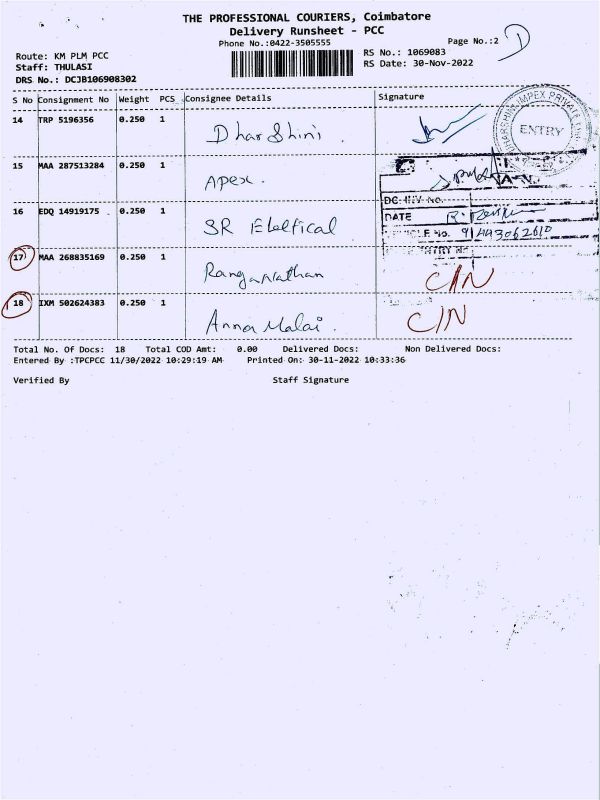 THE PROFESSIONAL COURIERS, Coimbatore
Delivery Runsheet - PCC
Phone No.:0422-3505555
Page No.:2
Route: KM PLM PCC
Staff: THULASI
DRS No.: DCJB106908302
RS No.: 1069083
RS Date: 30-Nov-2022
S No Consignment No Weight PCS Consignee Details Signature
14 TRP 5196356 0.250 1 Dharshini.
IMPEX PRIVATE
ENTRY
15 MAA 287513284 0.250 1 Apex.
DC. INV No.
DATE
16 EDQ 14919175 0.250 1 SR Eleltical
17 MAA 268835169 0.250 1 Ranganathan C/N
18 IXM 502624383 0.250 1 Anna Malai. C/N
Total No. Of Docs: 18 Total COD Amt: 0.00 Delivered Docs: Non Delivered Docs:
Entered By :TPCPCC 11/30/2022 10:29:19 AM Printed On: 30-11-2022 10:33:36
Verified By Staff Signature